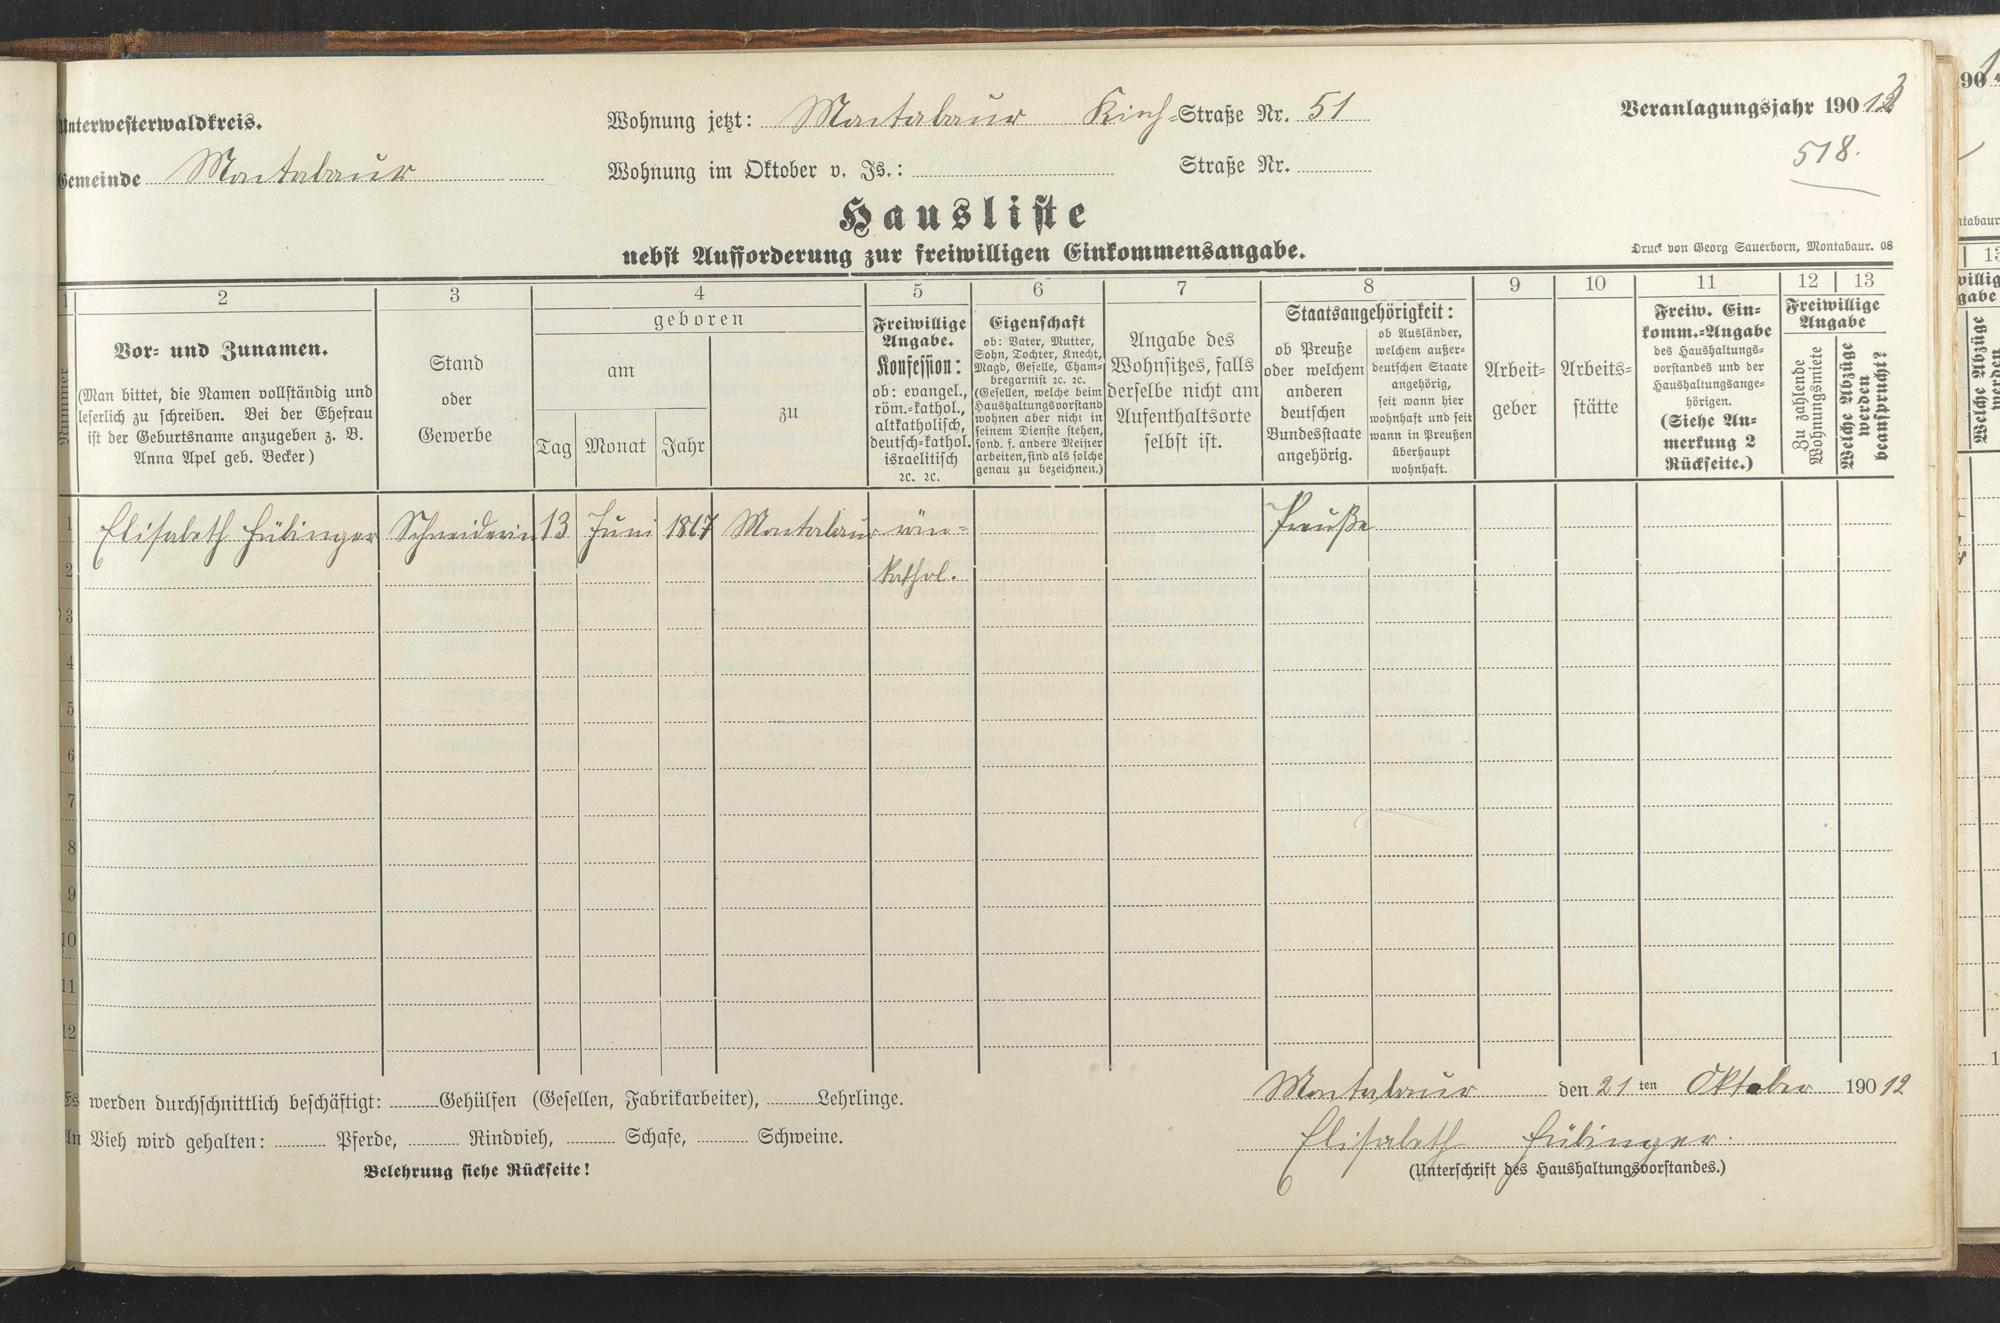 Unterwesterwaldkreis.
Wohnung jetzt: Montabaur Kirch-Straße Nr. 51
Veranlagungsjahr 190 13
Gemeinde Montabaur
Wohnung im Oktober v. Js.: Straße Nr.
518.
Hausliste
nebst Aufforderung zur freiwilligen Einkommensangabe.
Druck von Georg Sauerborn, Montabaur. 08
1 2 3 4 5 6 7 8 9 10 11 12 13
Nummer
Vor- und Zunamen.
(Man bittet, die Namen vollständig und
leserlich zu schreiben. Bei der Ehefrau
ist der Geburtsname anzugeben z. B.
Anna Apel geb. Becker)
Stand
oder
Gewerbe
geboren
am
Tag Monat Jahr
zu
Freiwillige
Angabe.
Konfession:
ob: evangel.,
röm.-kathol.,
altkatholisch,
deutsch-kathol.
israelitisch
ꝛc. ꝛc.
Eigenschaft
ob: Vater, Mutter,
Sohn, Tochter, Knecht,
Magd, Geselle, Cham-
bregarnist ꝛc. ꝛc.
(Gesellen, welche beim
Haushaltungsvorstand
wohnen aber nicht in
seinem Dienste stehen,
sond. f. andere Meister
arbeiten, sind als solche
genau zu bezeichnen.)
Angabe des
Wohnsitzes, falls
derselbe nicht am
Aufenthaltsorte
selbst ist.
Staatsangehörigkeit:
ob Preuße
oder welchem
anderen
deutschen
Bundesstaate
angehörig.
ob Ausländer,
welchem außer-
deutschen Staate
angehörig,
seit wann hier
wohnhaft und seit
wann in Preußen
überhaupt
wohnhaft.
Arbeit-
geber
Arbeits-
stätte
Freiw. Ein-
komm.-Angabe
des Haushaltungs-
vorstandes und der
Haushaltungsange-
hörigen.
(Siehe An-
merkung 2
Rückseite.)
Freiwillige
Angabe
Zu zahlende
Wohnungsmiete
Welche Abzüge
werden
beansprucht?
1 Elisabeth Hübinger Schneiderin 13 Juni 1867 Montabaur röm- Preuße
2 kathol.
3
4
5
6
7
8
9
10
11
12
Es werden durchschnittlich beschäftigt: Gehülfen (Gesellen, Fabrikarbeiter), Lehrlinge.
An Vieh wird gehalten: Pferde, Rindvieh, Schafe, Schweine.
Belehrung siehe Rückseite!
Montabaur den 21 ten Oktober 190 12
Elisabeth Hübinger.
(Unterschrift des Haushaltungsvorstandes.)